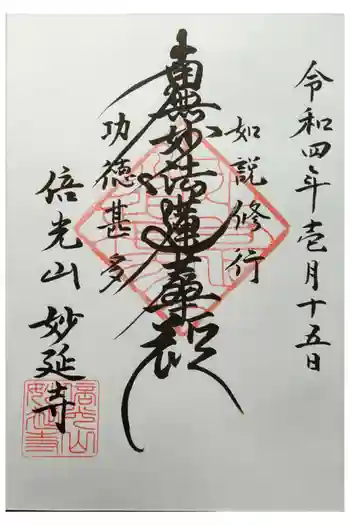 令和四年壱月十五日
如説修行
南無妙法蓮華経
功徳甚多
倍光山 妙延寺
倍光山妙延寺